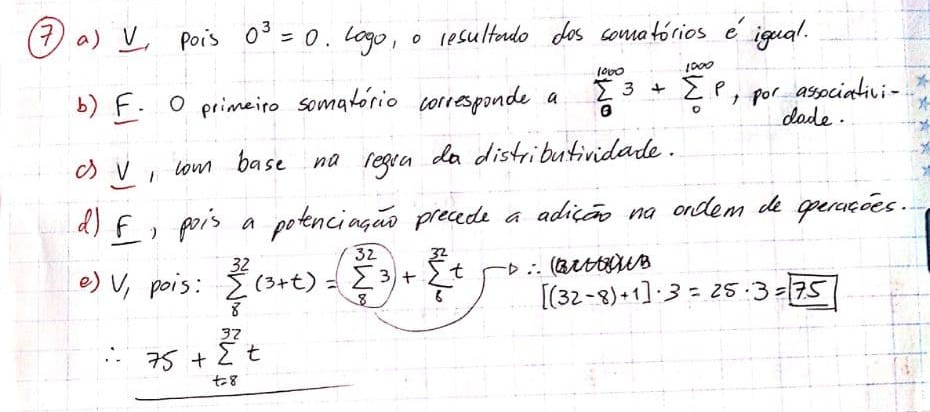 7 a) V, pois 0³ = 0. Logo, o resultado dos somatórios é igual.
b) F. O primeiro somatório corresponde a ∑_{0}^{1000} 3 + ∑_{0}^{1000} P, por associativi-
dade.
c) V, com base na regra da distributividade.
d) F, pois a potenciação precede a adição na ordem de operações.
e) V, pois: ∑_{8}^{32} (3+t) = ∑_{8}^{32} 3 + ∑_{8}^{32} t → ∴
[(32-8)+1]·3 = 25·3 = 75
∴ 75 + ∑_{t=8}^{32} t